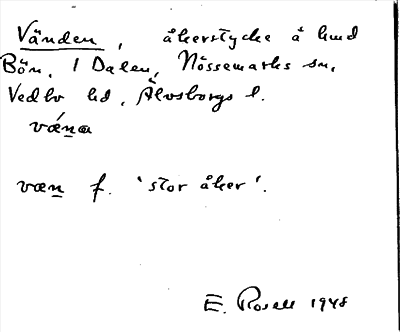 Vänden, åkerstycke å hmd
Bön, 1 Dalen, Nössemarks sn,
Vedbo hd, Älvsborgs l.
vǽna
væn f. 'stor åker'.
E. Rosell 1948